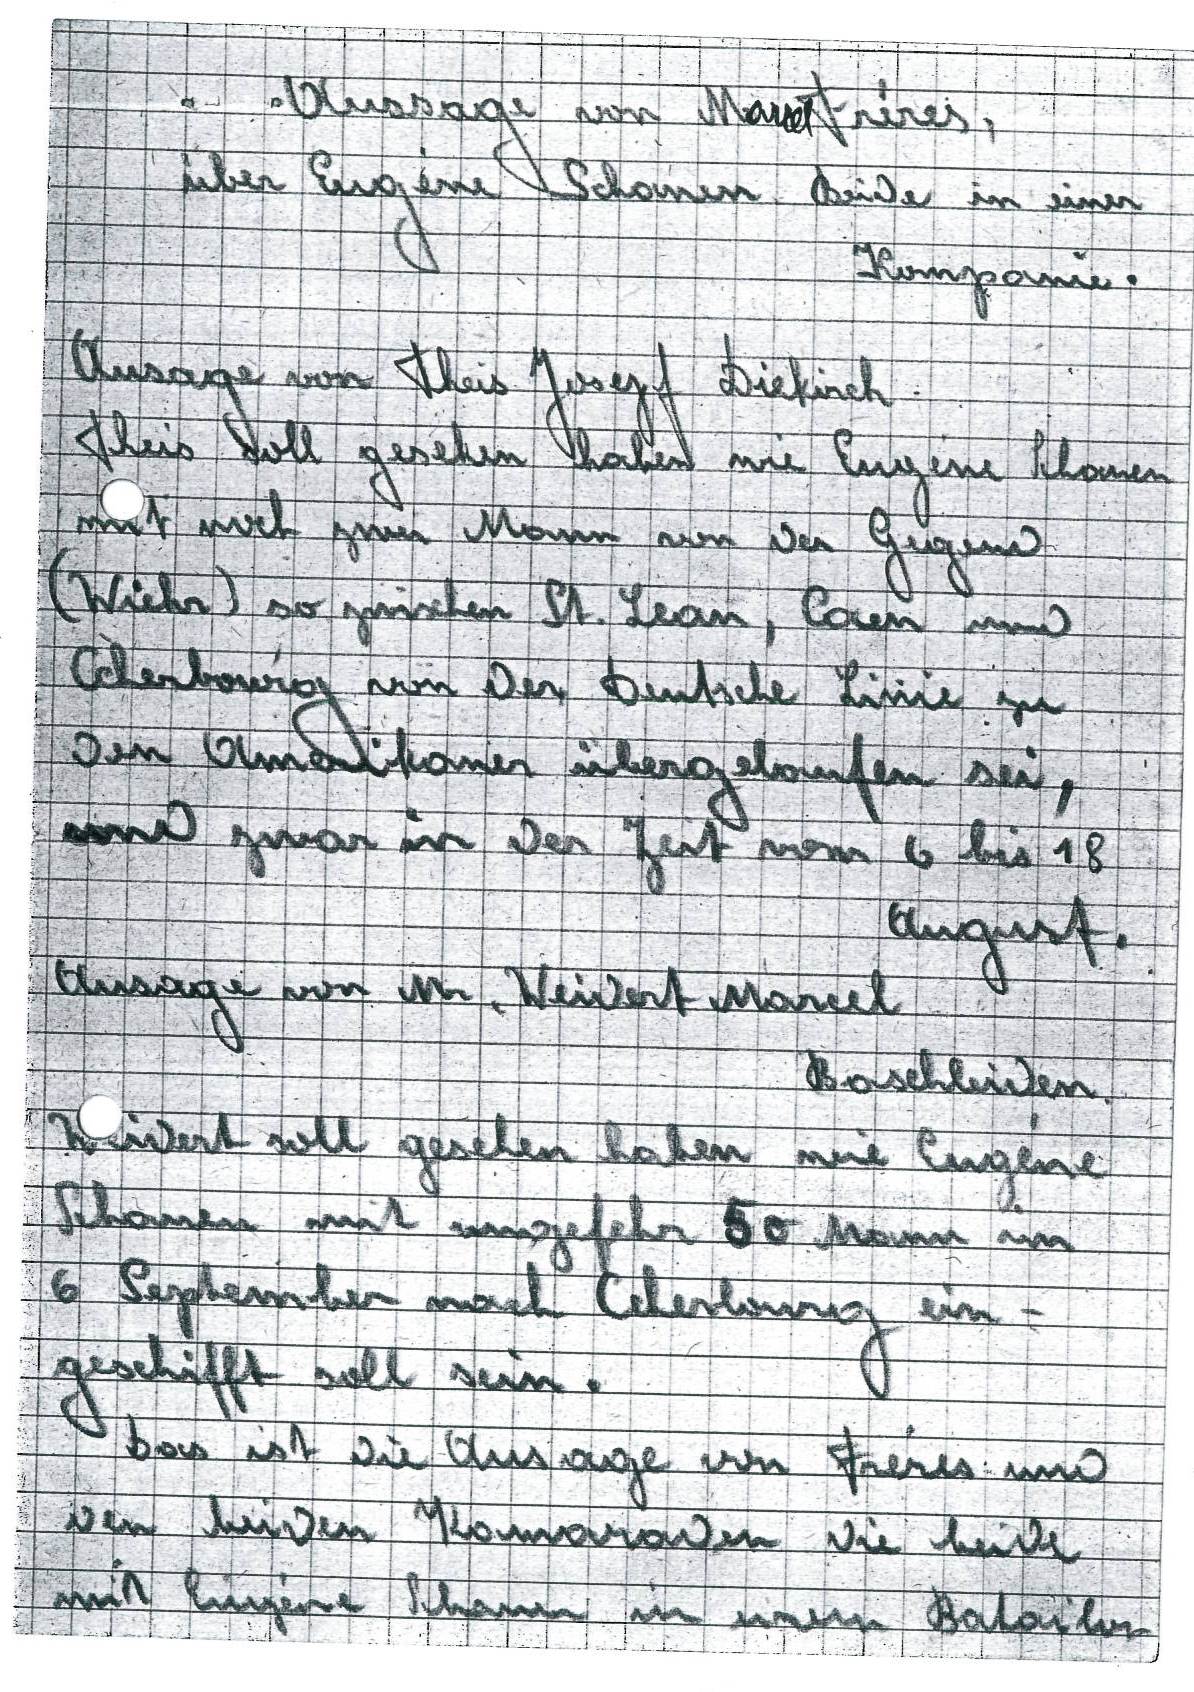 Aussage von Marcel Frères,
über Eugène Schanen Beide in einer
Kompanie.
Ausage von Theis Josepf Diekirch
Theis soll gesehen haben wie Eugène Schanen
mit noch zwei Mann von der Gegend
(Wiehr) so zwischen St. Lean, Caen und
Cherbourg von der Deutsche Linie zu
den Amerikaner übergelaufen sei,
und zwar in der Zeit vom 6 bis 18
August.
Ausage von Mr. Weivert Marcel
Baschleiden.
Weivert soll gesehen haben wie Eugène
Schanen mit ungefehr 50 Mann im
6 September nach Cherbourg ein-
geschifft soll sein.
Das ist die Ausage von Frères und
den beiden Kamaraden die beide
mit Eugène Schanen in einem Batailon